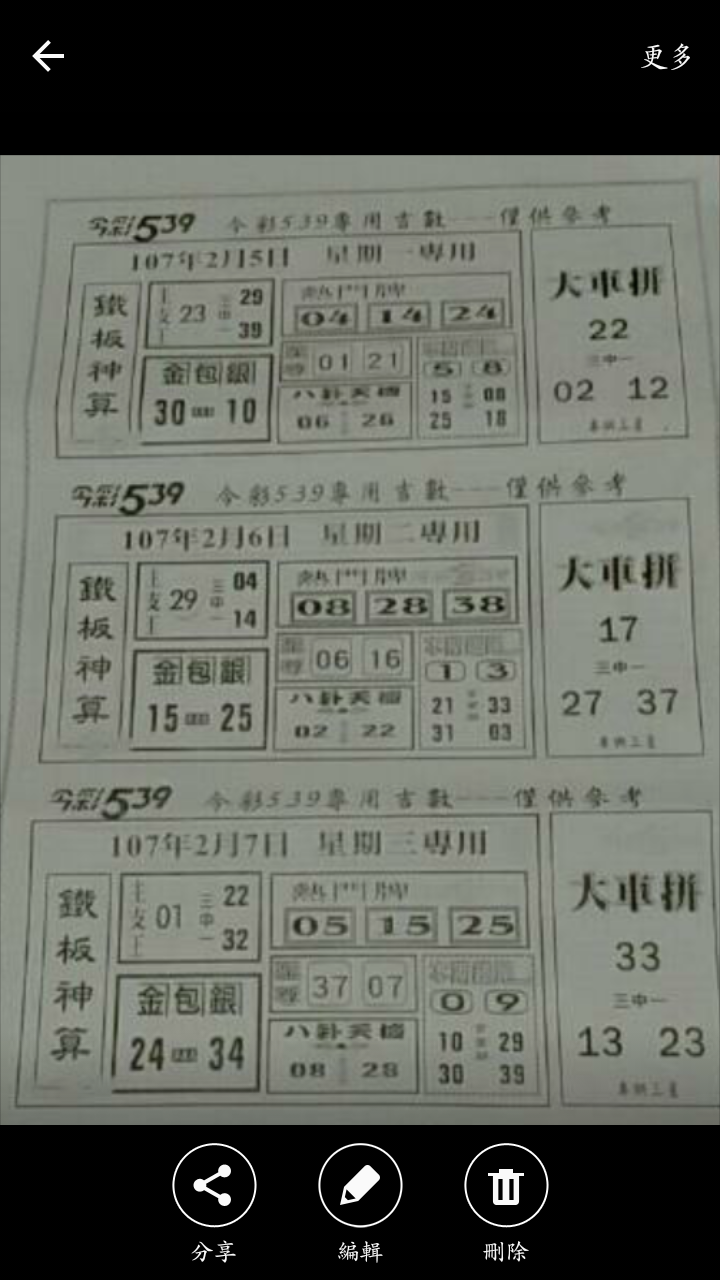 更多
今彩539 今彩539專用吉數----僅供參考
107年2月5日 星期一專用
鐵板神算
23 三中一 29 39
金包銀
30 10
熱門牌
04 14 24
01 21
5 8
八卦天機
06 26
15 08
25 18
大車拼
22
三中一
02 12
今彩539 今彩539專用吉數----僅供參考
107年2月6日 星期二專用
鐵板神算
29 三中一 04 14
金包銀
15 25
熱門牌
08 28 38
06 16
1 3
八卦天機
02 22
21 33
31 03
大車拼
17
三中一
27 37
今彩539 今彩539專用吉數----僅供參考
107年2月7日 星期三專用
鐵板神算
01 三中一 22 32
金包銀
24 34
熱門牌
05 15 25
37 07
0 9
八卦天機
08 28
10 29
30 39
大車拼
33
三中一
13 23
分享 編輯 刪除